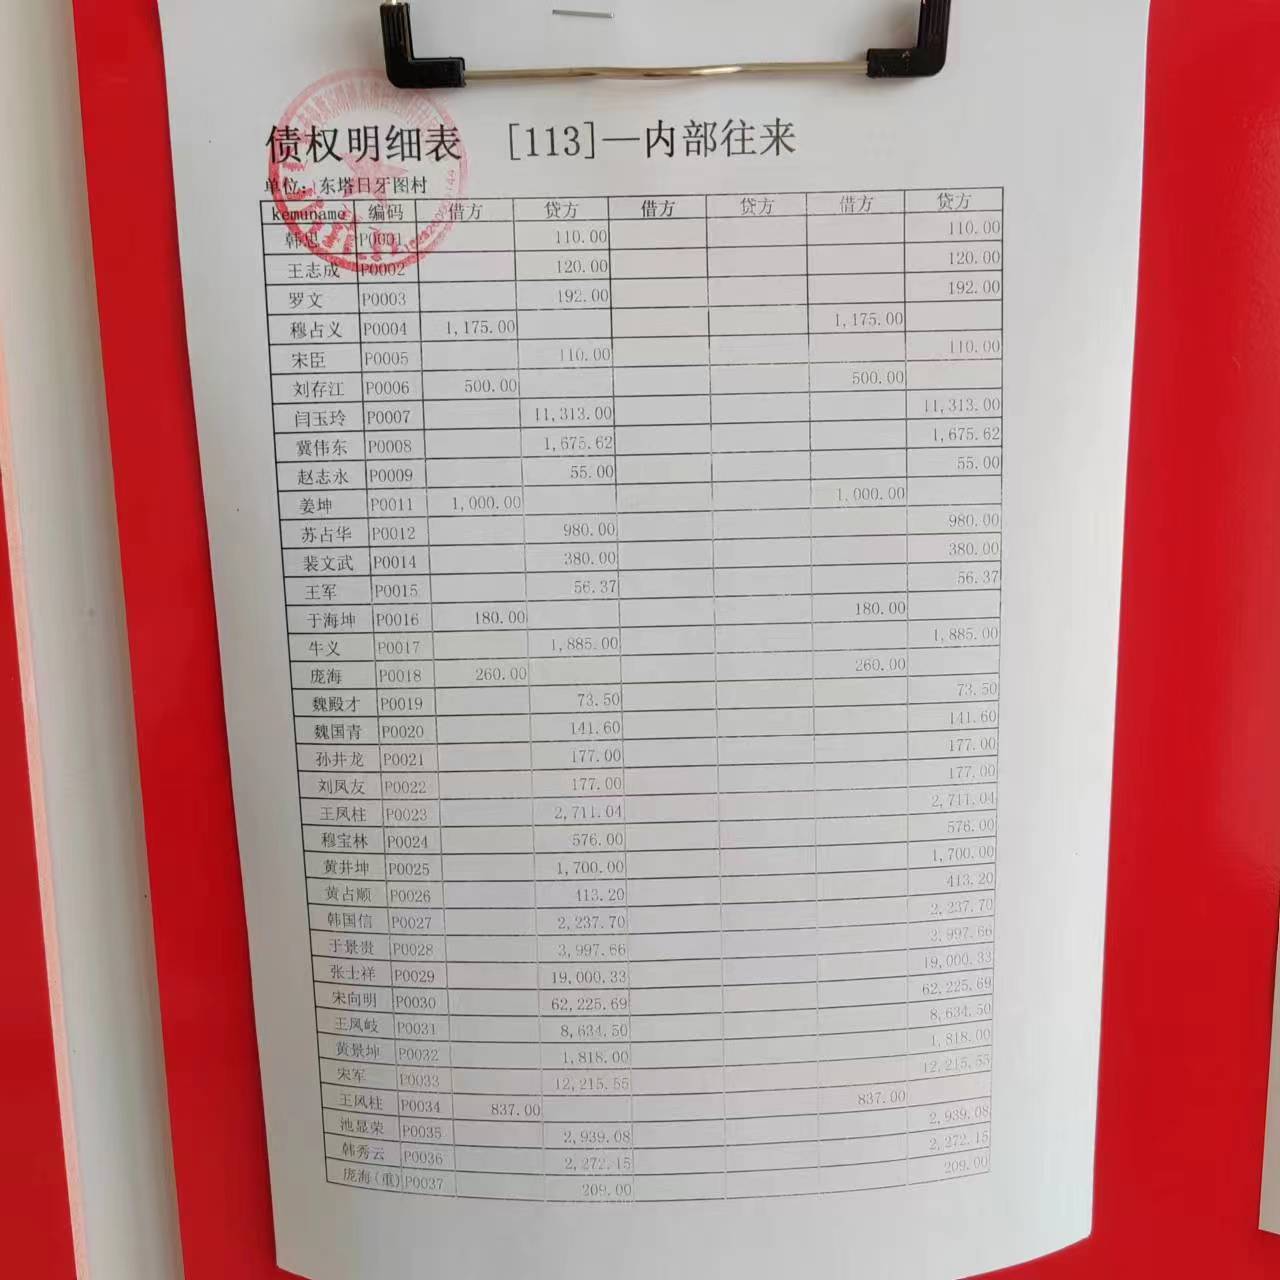 债权明细表 [113]—内部往来
单位: 东塔日牙图村
kemuname 编码 借方 贷方 借方 贷方 借方 贷方
韩忠 P0001 110.00 110.00
王志成 P0002 120.00 120.00
罗文 P0003 192.00 192.00
穆占义 P0004 1,175.00 1,175.00
宋臣 P0005 110.00 110.00
刘存江 P0006 500.00 500.00
闫玉玲 P0007 11,313.00 11,313.00
冀伟东 P0008 1,675.62 1,675.62
赵志永 P0009 55.00 55.00
姜坤 P0011 1,000.00 1,000.00
苏占华 P0012 980.00 980.00
裴文武 P0014 380.00 380.00
王军 P0015 56.37 56.37
于海坤 P0016 180.00 180.00
牛义 P0017 1,885.00 1,885.00
庞海 P0018 260.00 260.00
魏殿才 P0019 73.50 73.50
魏国青 P0020 141.60 141.60
孙井龙 P0021 177.00 177.00
刘凤友 P0022 177.00 177.00
王凤柱 P0023 2,711.04 2,711.04
穆宝林 P0024 576.00 576.00
黄井坤 P0025 1,700.00 1,700.00
黄占顺 P0026 413.20 413.20
韩国信 P0027 2,237.70 2,237.70
于景贵 P0028 3,997.66 3,997.66
张士祥 P0029 19,000.33 19,000.33
宋向明 P0030 62,225.69 62,225.69
王凤岐 P0031 8,634.50 8,634.50
黄景坤 P0032 1,818.00 1,818.00
宋军 P0033 12,215.55 12,215.55
王凤柱 P0034 837.00 837.00
池显荣 P0035 2,939.08 2,939.08
韩秀云 P0036 2,272.15 2,272.15
庞海(重) P0037 209.00 209.00